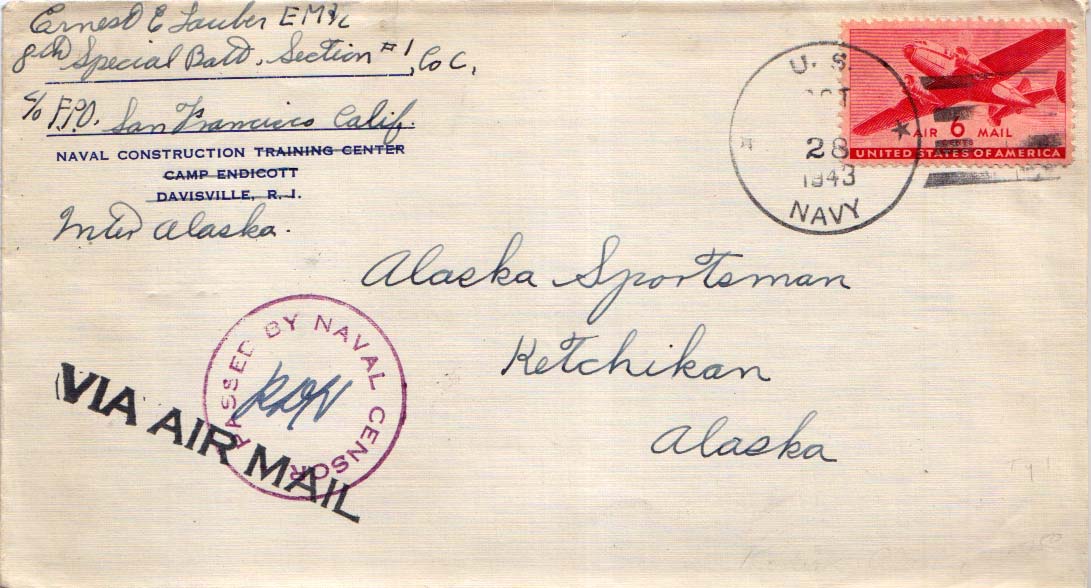 Ernest E Lauber EM 1/c
8th Special Batt, Section #1, Co C,
c/o F.P.O. San Francisco Calif.
NAVAL CONSTRUCTION TRAINING CENTER
CAMP ENDICOTT
DAVISVILLE, R. I.
Inter Alaska.
U. S.
OCT
28
1943
NAVY
AIR 6 MAIL
UNITED STATES OF AMERICA
Alaska Sportsman
Ketchikan
Alaska
PASSED BY NAVAL CENSOR
VIA AIR MAIL